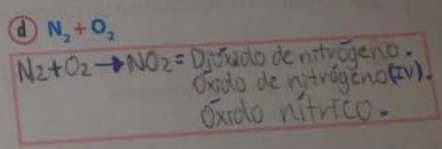 d N₂ + O₂
N₂ + O₂ → NO₂ = Dióxido de nitrógeno.
Óxido de nitrógeno (IV).
Óxido nítrico.